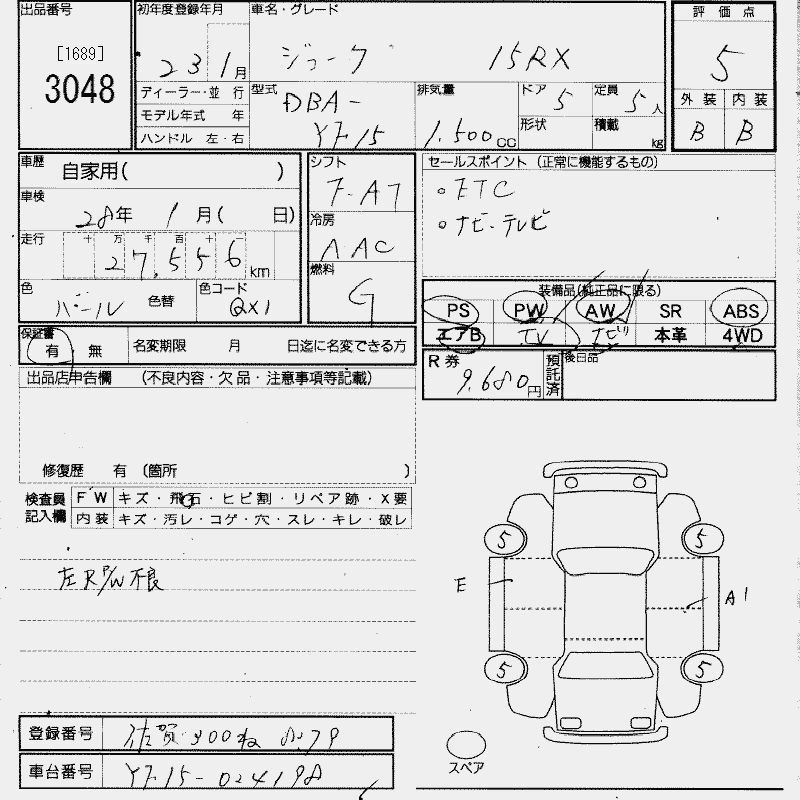 出品番号
[1689]
3048
初年度登録年月
23 1月
ディーラー・並 行
モデル年式 年
ハンドル 左・右
車名・グレード
ジューク 15RX
型式
DBA-
YF15
排気量
1.500cc
ドア
5
定員
5人
形状
積載
kg
評価点
5
外装 内装
B B
車歴
自家用( )
車検
28年 1月( 日)
走行
十 万 千 百 十 一
27,556 km
色
パール 色替
色コード
QX1
シフト
F-AT
冷房
AAC
燃料
G
セールスポイント (正常に機能するもの)
○ETC
○ナビ・テレビ
装備品(純正品に限る)
PS PW AW SR ABS
エアB TV ナビ 本革 4WD
保証書
有 無
名変期限 月 日迄に名変できる方
R券
9.680円
預託済
後日品
出品店申告欄 (不良内容・欠品・注意事項等記載)
修復歴 有 (箇所 )
検査員
記入欄
FW キズ・飛石・ヒビ割・リペア跡・X要
内装 キズ・汚レ・コゲ・穴・スレ・キレ・破レ
左R P/W不良
5 5
E A1
5 5
スペア
登録番号 佐賀 300 ね
車台番号 YF15-024198